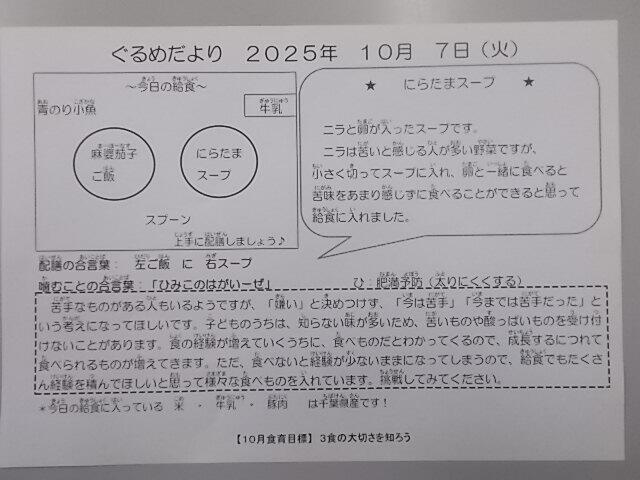 ぐるめだより　2025年　10月　7日（火）
～今日の給食～
青のり小魚
牛乳
麻婆茄子
ご飯
にらたま
スープ
スプーン
上手に配膳しましょう♪
★　にらたまスープ　★
ニラと卵が入ったスープです。
ニラは苦いと感じる人が多い野菜ですが、
小さく切ってスープに入れ、卵と一緒に食べると
苦味をあまり感じずに食べることができると思って
給食に入れました。
配膳の合言葉：　左ご飯　に　右スープ
噛むことの合言葉：「ひみこのはがいーぜ」　ひ：肥満予防（太りにくくする）
苦手なものがある人もいるようですが、「嫌い」と決めつけず、「今は苦手」「今までは苦手だった」と
いう考えになってほしいです。子どものうちは、知らない味が多いため、苦いものや酸っぱいものを受け付
けないことがあります。食の経験が増えていくうちに、食べものだとわかってくるので、成長するにつれて
食べられるものが増えてきます。ただ、食べないと経験が少ないままになってしまうので、給食でもたくさ
ん経験を積んでほしいと思って様々な食べものを入れています。挑戦してみてください。
＊今日の給食に入っている　米　・　牛乳　・　豚肉　は千葉県産です！
【10月食育目標】３食の大切さを知ろう